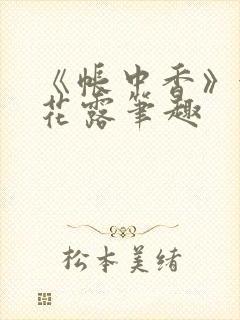 《帐中香》
花露笔趣
松本美绪